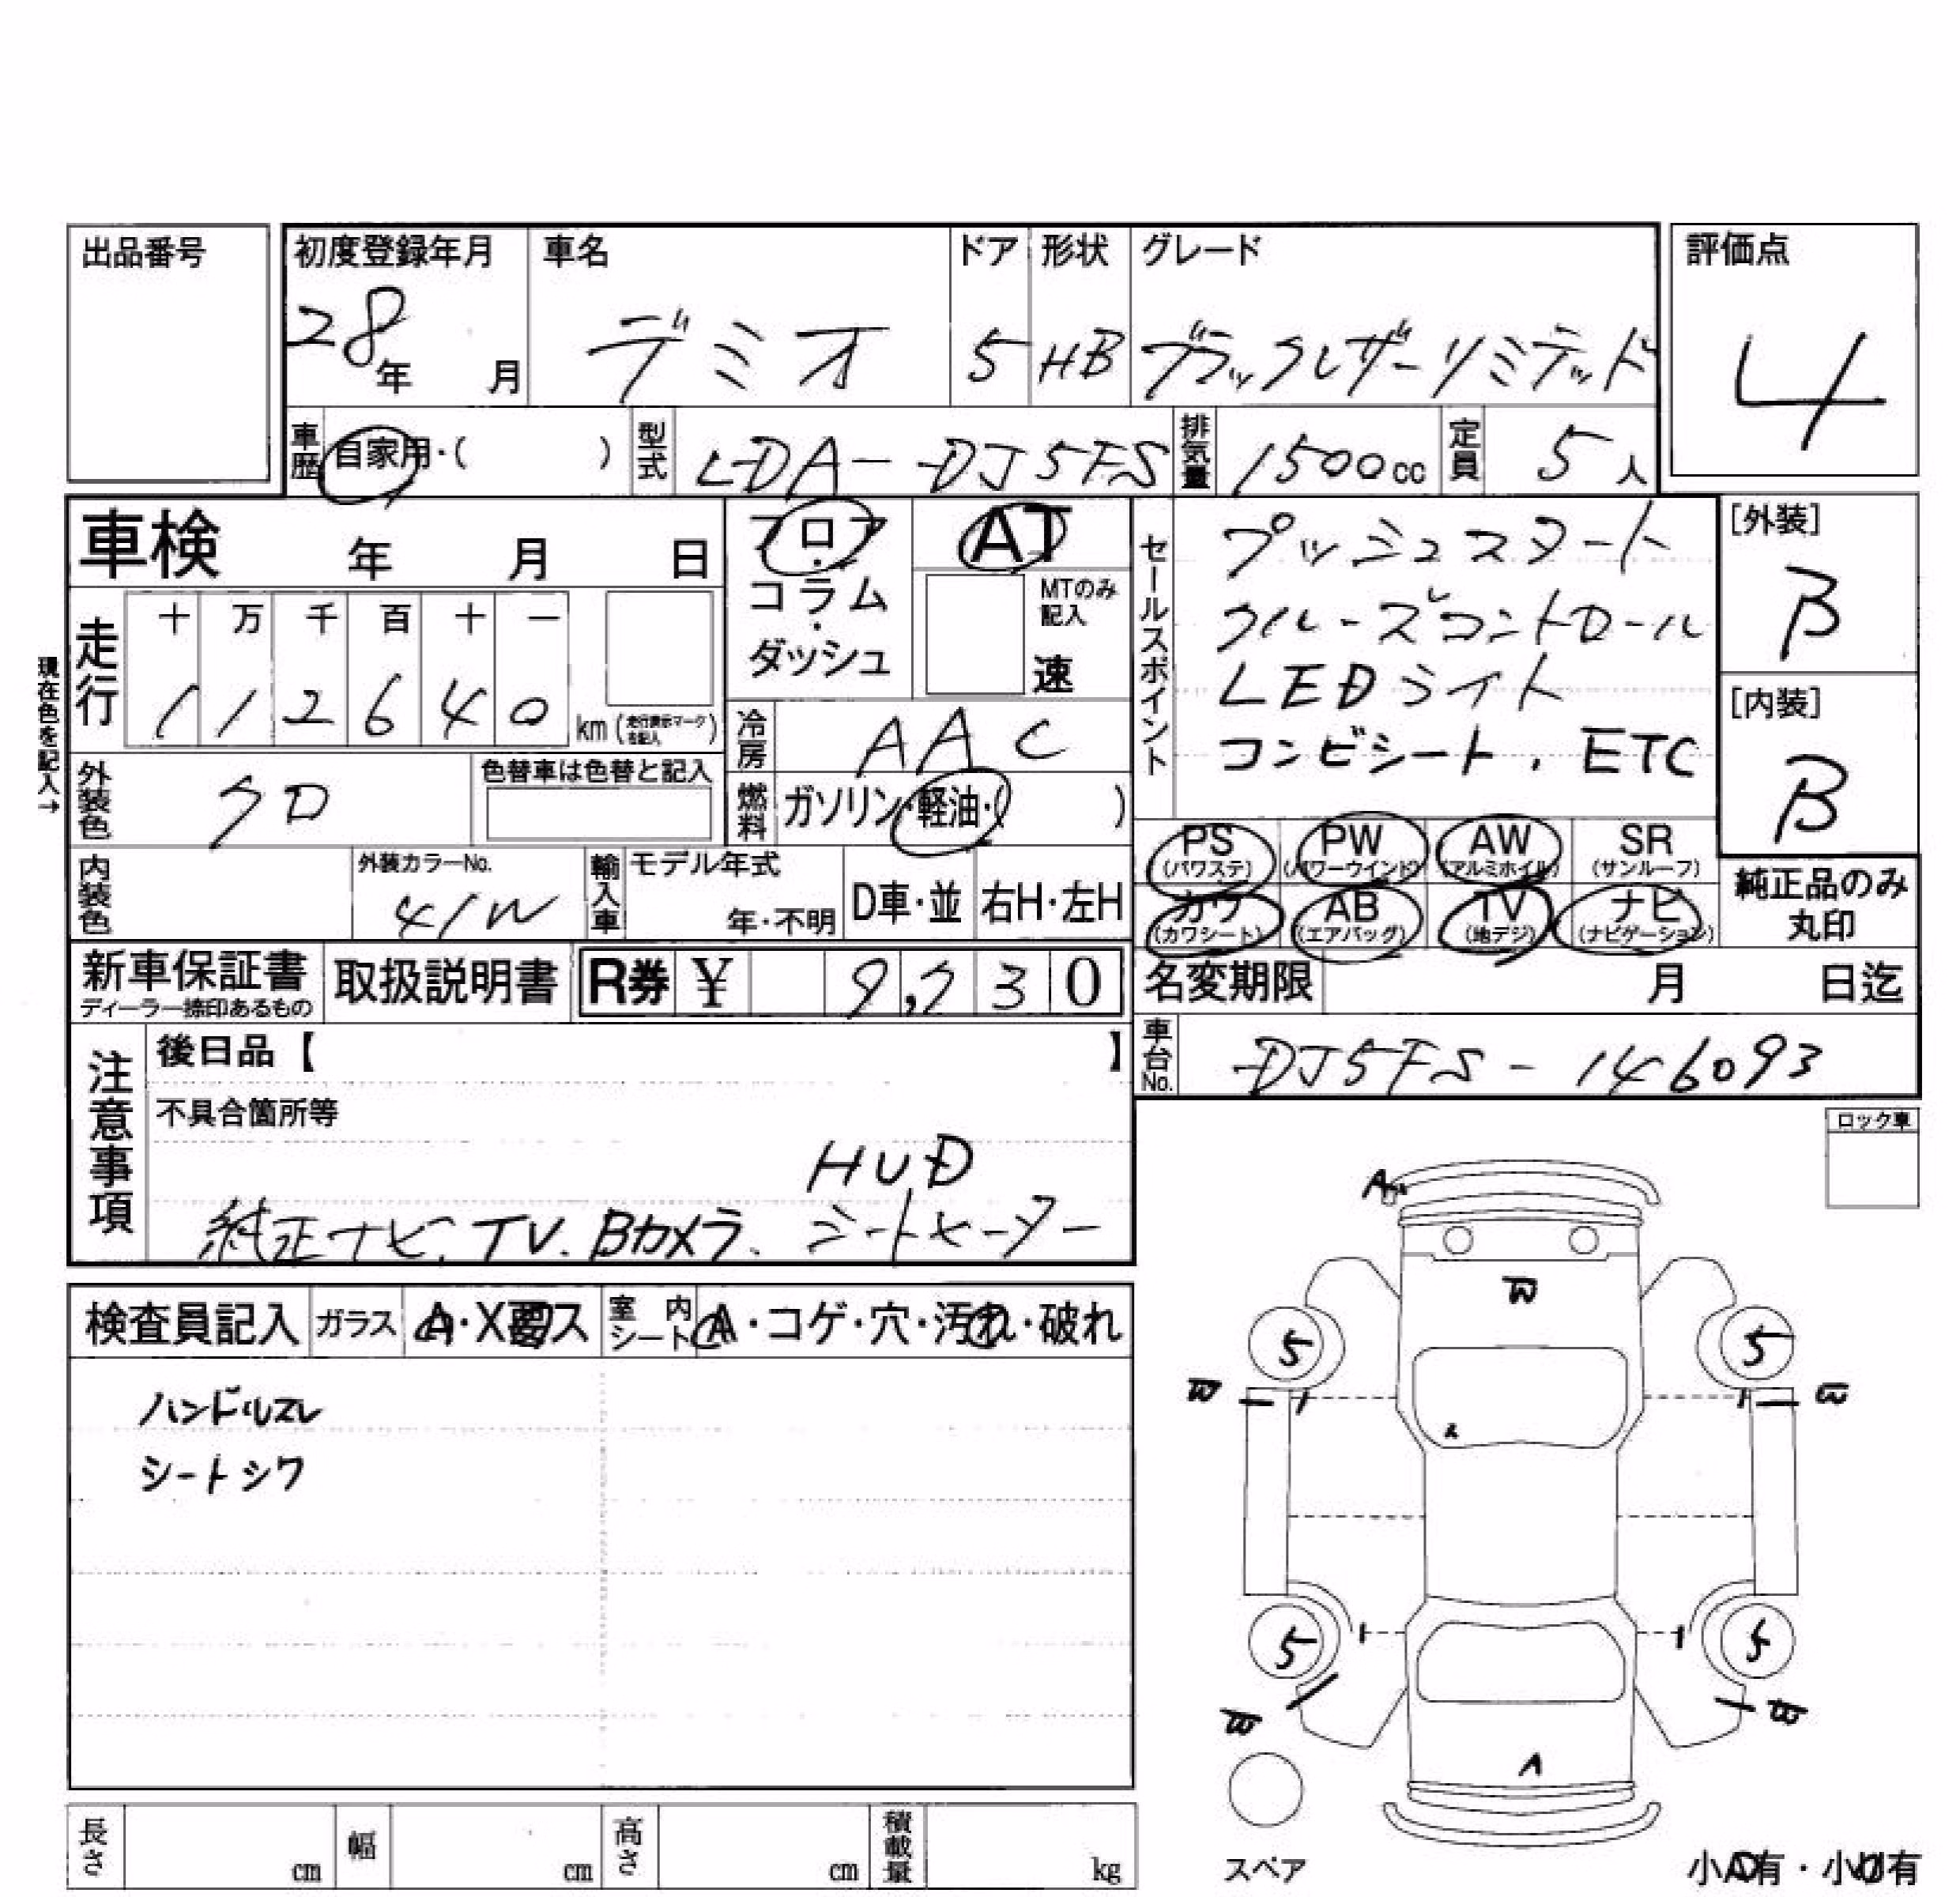 出品番号
初度登録年月 車名 ドア 形状 グレード 評価点
28年 月 デミオ 5 HB ブラックレザーリミテッド 4
車歴 自家用・( ) 型式 LDA-DJ5FS 排気量 1500cc 定員 5人
車検 年 月 日
フロア・コラム・ダッシュ
AT
MTのみ記入
速
セールスポイント
プッシュスタート
クルーズコントロール
LEDライト
コンビシート、ETC
[外装]
B
[内装]
B
現在色を記入→
走行 十 万 千 百 十 一
1 1 2 6 4 0 km (走行表示マーク右記入)
冷房 AAC
外装色 クロ 色替車は色替と記入
燃料 ガソリン・軽油・( )
PS (パワステ) PW (パワーウインド) AW (アルミホイル) SR (サンルーフ)
カワ (カワシート) AB (エアバッグ) TV (地デジ) ナビ (ナビゲーション)
純正品のみ
丸印
内装色 外装カラーNo. 41W 輸入車 モデル年式 年・不明 D車・並 右H・左H
新車保証書 ディーラー捺印あるもの 取扱説明書 R券 ¥ 9,730
名変期限 月 日迄
車台No. DJ5FS-146093
注意事項
後日品【 】
不具合箇所等
HUD
純正ナビ、TV、Bカメラ、シートヒーター
ロック車
検査員記入 ガラス A・X要・ス 室内シート A・コゲ・穴・汚れ・破れ
ハンドルスレ
シートシワ
A
W
5 5
W W
5 5
W W
A
スペア
長さ cm 幅 cm 高さ cm 積載量 kg
小A有・小U有